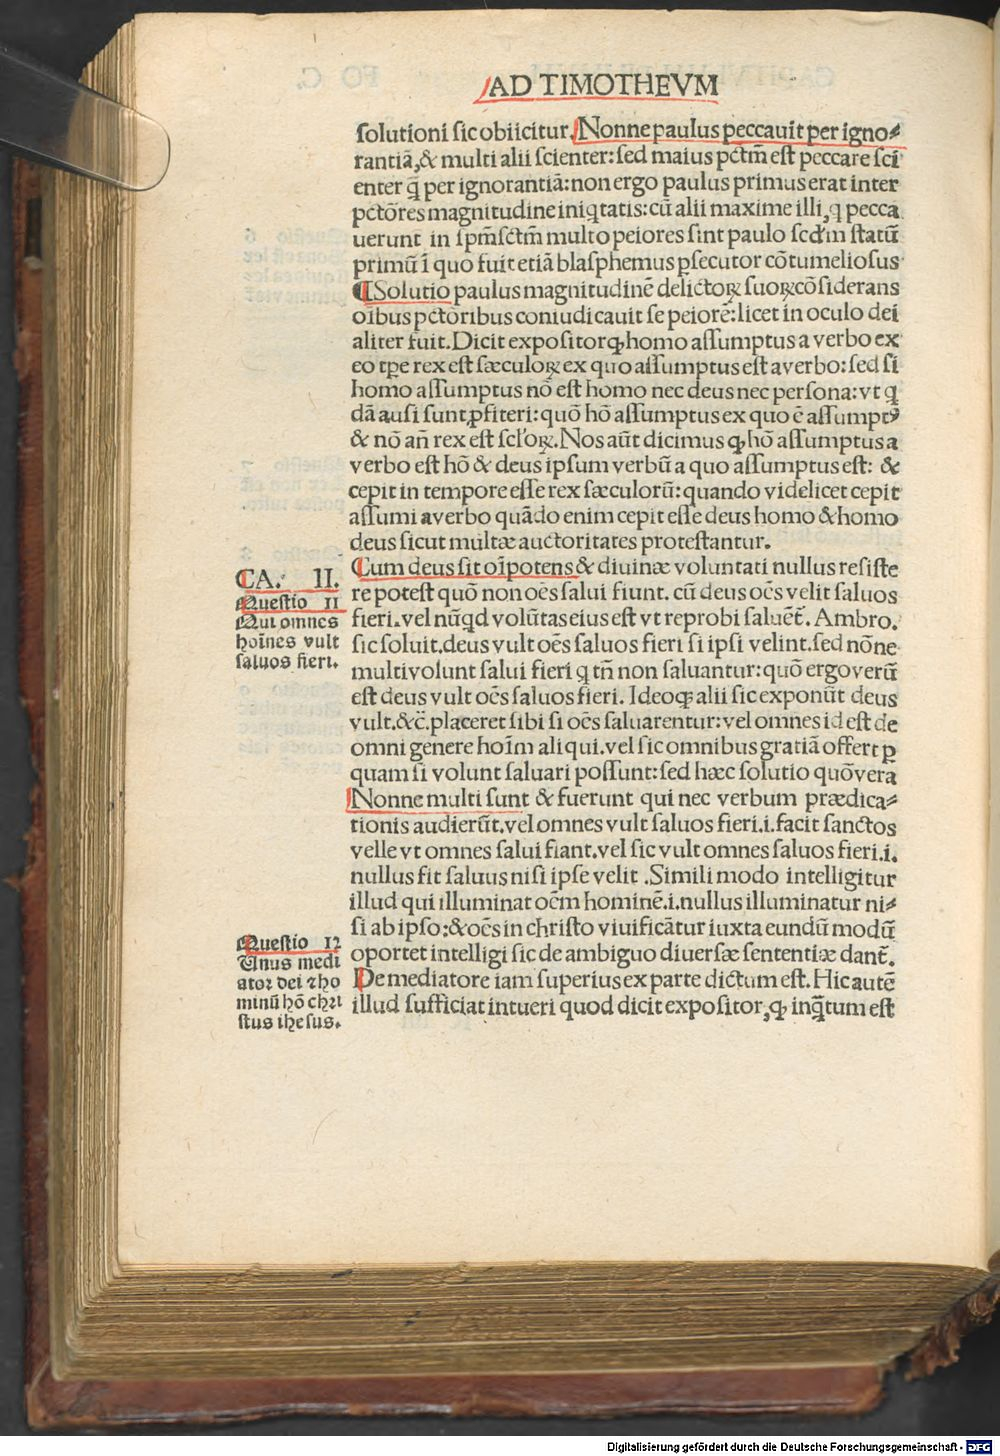 AD TIMOTHEVM
solutioni sic obiicitur. Nonne paulus peccauit per igno⸗
rantiā, & multi alii scienter: sed maius pctm̄ est peccare sci
enter q̄ per ignorantiā: non ergo paulus primus erat inter
pctōres magnitudine iniqtatis: cū alii maxime illi, q pecca
uerunt in spm̄sctm̄ multo peiores sint paulo scđm statū
primū ī quo fuit etiā blasphemus ꝑsecutor cōtumeliosus
¶ Solutio paulus magnitudinē delictoꝝ suoꝝ cōsiderans
oībus pctoribus coniudicauit se peiorē: licet in oculo dei
aliter fuit. Dicit expositor ꝙ homo assumptus a verbo ex
eo tꝑe rex est sæculoꝝ ex quo assumptus est a verbo: sed si
homo assumptus nō est homo nec deus nec persona: vt q̄
dā ausi sunt ꝓfiteri: quō hō assumptus ex quo ē assumptꝰ
& nō añ rex est scl'oꝝ. Nos aūt dicimus ꝙ hō assumptus a
verbo est hō & deus ipsum verbū a quo assumptus est: &
cepit in tempore esse rex sæculorū: quando videlicet cepit
assumi a verbo quādo enim cepit esse deus homo & homo
deus sicut multæ auctoritates protestantur.
CA. II.
Cum deus sit oīpotens & diuinæ voluntati nullus resiste
re potest quō non oēs salui fiunt. cū deus oēs velit saluos
fieri. vel nūqd volūtas eius est vt reprobi saluēt̄. Ambro.
sic soluit. deus vult oēs saluos fieri si ipsi velint. sed nōne
multi volunt salui fieri q tñ non saluantur: quō ergo verū
est deus vult oēs saluos fieri. Ideoqꝫ alii sic exponūt deus
vult. &c̄. placeret sibi si oēs saluarentur: vel omnes id est de
omni genere hoīm aliqui. vel sic omnibus gratiā offert ꝑ
quam si volunt saluari possunt: sed hæc solutio quō vera
Nonne multi sunt & fuerunt qui nec verbum prædica⸗
tionis audierūt. vel omnes vult saluos fieri. i. facit sanctos
velle vt omnes salui fiant. vel sic vult omnes saluos fieri. i.
nullus fit saluus nisi ipse velit. Simili modo intelligitur
illud qui illuminat oēm hominē. i. nullus illuminatur ni⸗
si ab ipso: & oēs in christo viuificātur iuxta eundū modū
oportet intelligi sic de ambiguo diuersæ sententiæ dant̄.
De mediatore iam superius ex parte dictum est. Hic autē
illud sufficiat intueri quod dicit expositor, ꝙ inq̄tum est
Questio 11
Qui omnes
hoīnes vult
saluos fieri.
Questio 12
Unus medi
ator dei ⁊ ho
minū hō chri
stus ihesus.
Digitalisierung gefördert durch die Deutsche Forschungsgemeinschaft - DFG